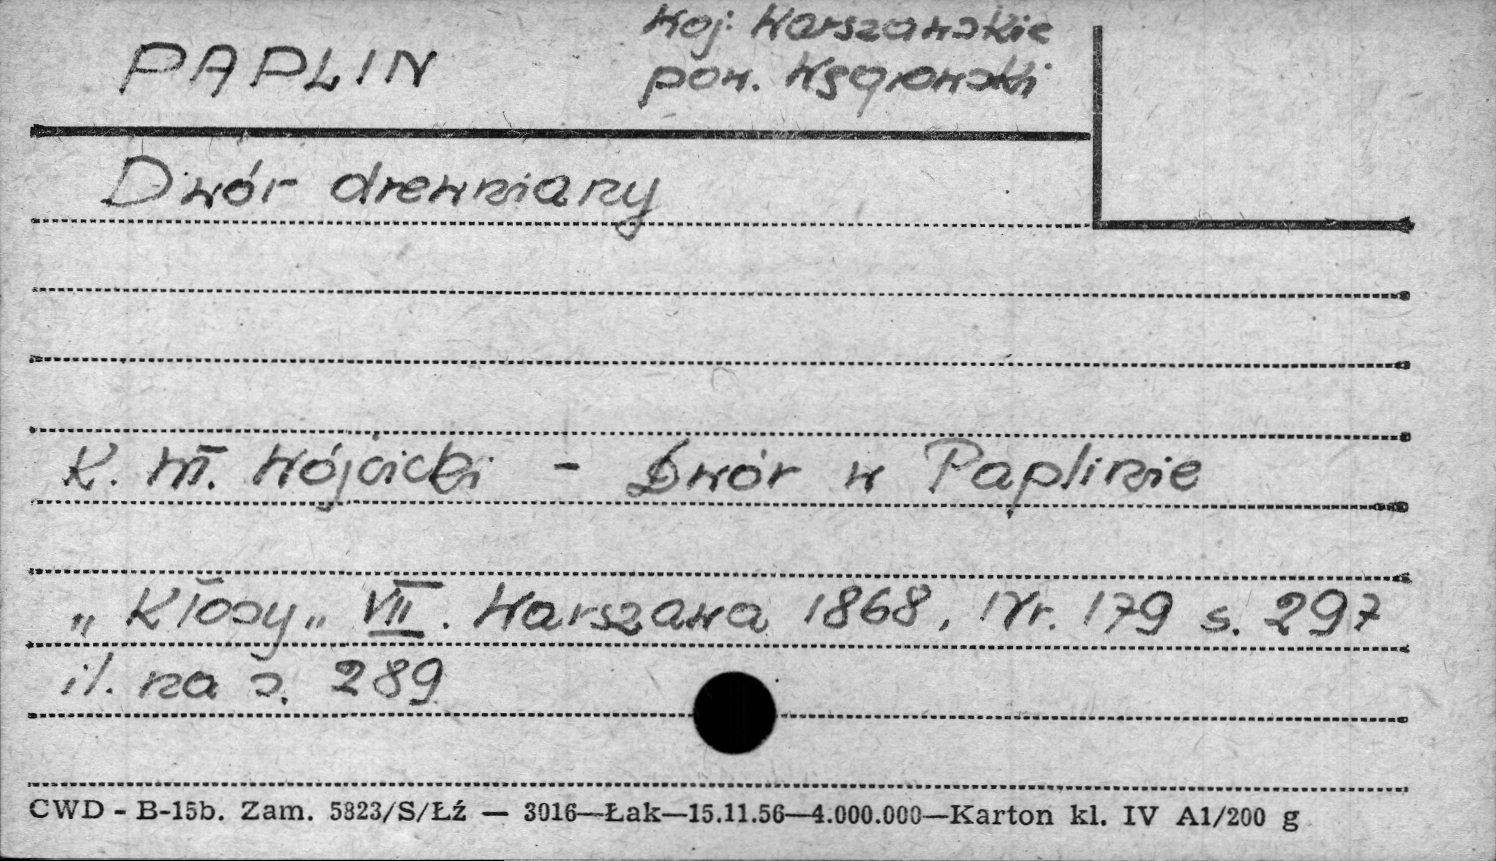 PAPLIN
Woj. Warszawskie
pow. Węgrowski
Dwór drewniany
K. Wł. Wójcicki - Dwór w Paplinie
„Kłosy„ VII. Warszawa 1868, Nr. 179 s. 297
il. na s. 289
CWD - B-15b. Zam. 5823/S/Łź — 3016—Łak—15.11.56—4.000.000—Karton kl. IV A1/200 g